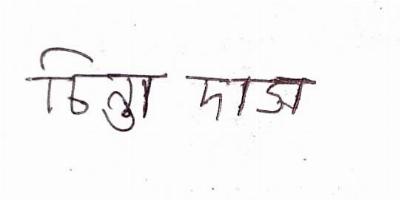 চিন্তা দাস